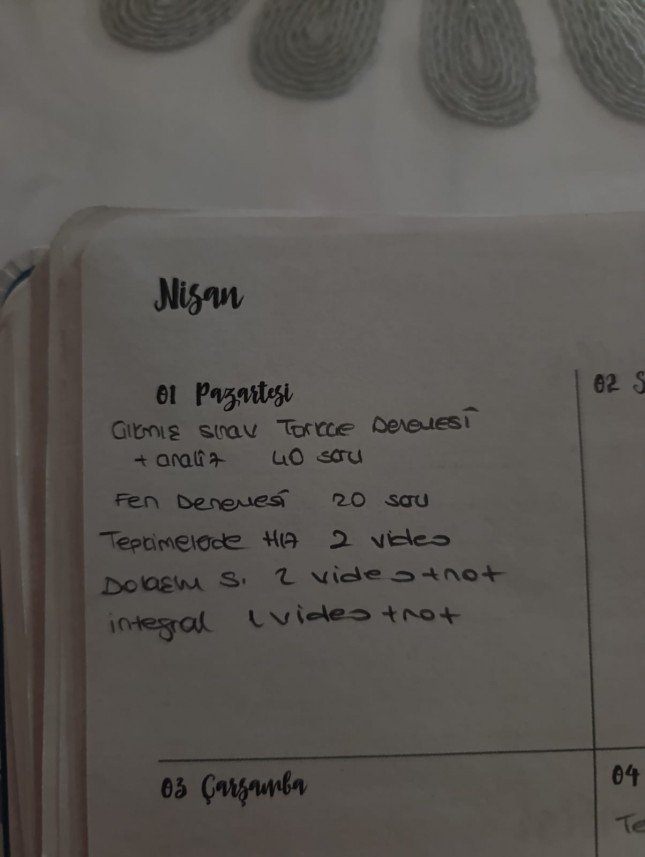 Nisan
01 Pazartesi
02 S
Çıkmış sınav Türkçe Denemesi
+ analiz 40 soru
Fen Denemesi 20 soru
Tepkimelerde Hız 2 video
Dolaşım S. 2 video+not
integral 1 video+not
03 Çarşamba
04
Te